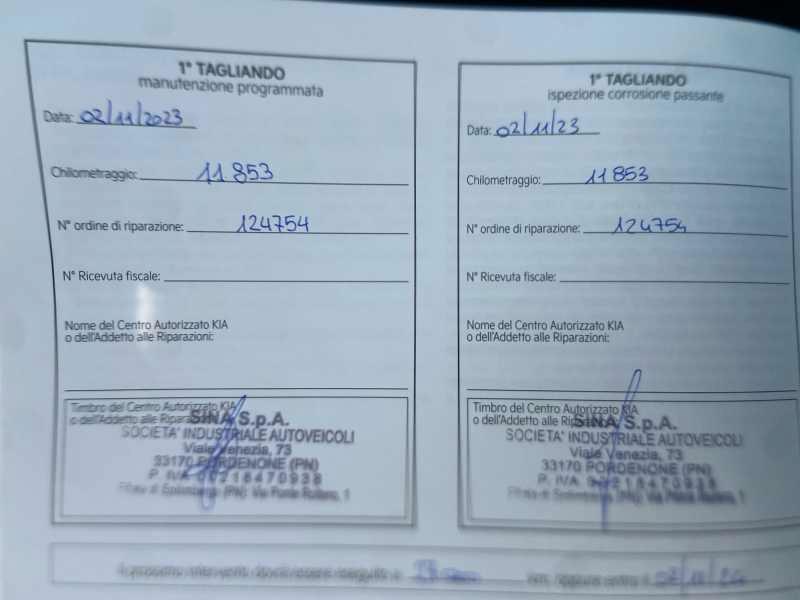 1° TAGLIANDO
manutenzione programmata
Data: 02/11/2023
Chilometraggio: 11853
N° ordine di riparazione: 124754
N° Ricevuta fiscale:
Nome del Centro Autorizzato KIA
o dell'Addetto alle Riparazioni:
Timbro del Centro Autorizzato KIA
o dell'Addetto alle Riparazioni
SINA S.p.A.
SOCIETA' INDUSTRIALE AUTOVEICOLI
Viale Venezia, 73
33170 PORDENONE (PN)
P. IVA 00218470938
Filiale di Spilimbergo (PN): Via Ponte Roitero, 1
1° TAGLIANDO
ispezione corrosione passante
Data: 02/11/23
Chilometraggio: 11853
N° ordine di riparazione: 124754
N° Ricevuta fiscale:
Nome del Centro Autorizzato KIA
o dell'Addetto alle Riparazioni:
Timbro del Centro Autorizzato KIA
o dell'Addetto alle Riparazioni
SINA S.p.A.
SOCIETA' INDUSTRIALE AUTOVEICOLI
Viale Venezia, 73
33170 PORDENONE (PN)
P. IVA 00218470938
Filiale di Spilimbergo (PN): Via Ponte Roitero, 1
Il prossimo intervento dovrà essere eseguito a km, oppure entro il 02/11/24